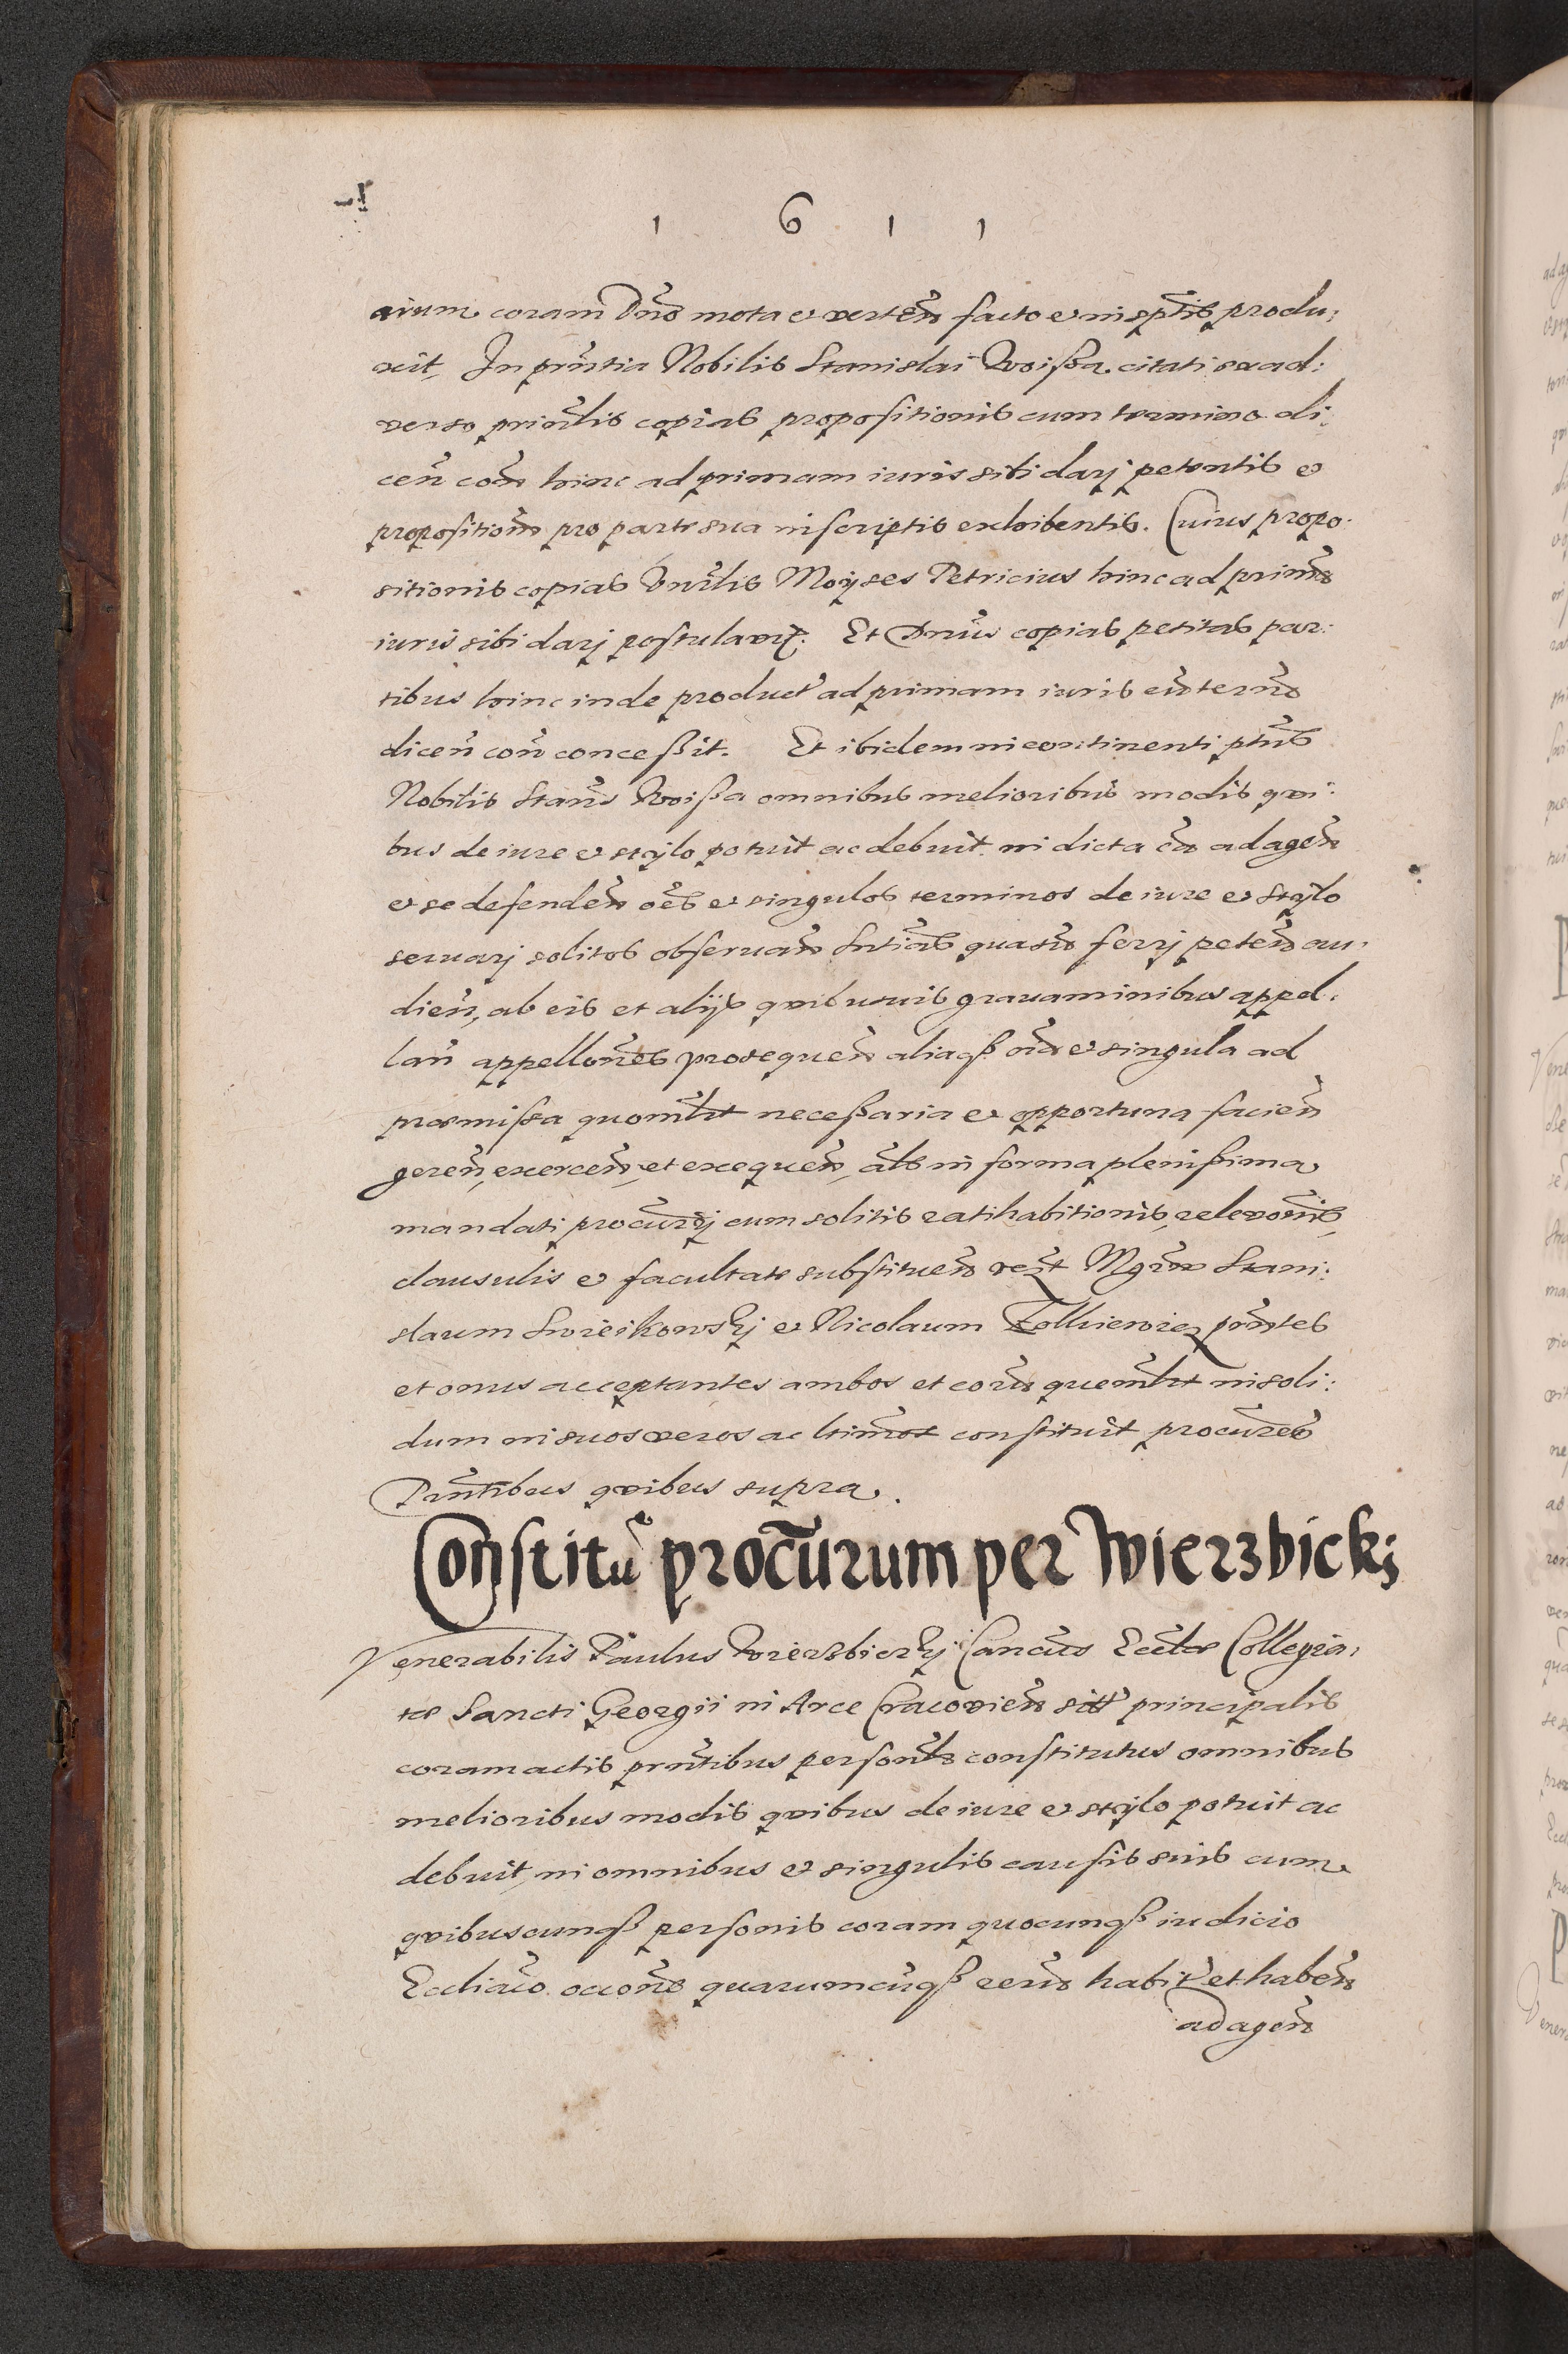 1 6 1 1
arium coram Dno mota et verten facto et in scptis produ:
xit, In prntia Nobilis Stanislai Woißa citati ex ad:
verso prinlis copias propositionis cum termino di:
cen con hinc ad primam iuris sibi darj petentis et
proposition pro parte sua in scriptis exhibentis. Cuius propo:
sitionis copias Moijses Petricius hinc ad prima
iuris sibi darj postulavit. Et Dnus copias petitas par:
tibus hinc inde product ad primam iuris cum termo
dicen con conceßit. Et ibidem in continenti ptus
Nobilis Stans Woißa omnibus melioribus modis qui:
bus de iure et stylo potuit ac debuit in dicta ca ad agen
et se defenden oes et singulos terminos de iure et stylo
servarj solitos observan Sntias quascu ferrj peten au:
dien, ab eis et alijs quibusvis gravaminibus appel:
lan appellones prosequen aliaqß oia et singula ad
præmissa quomlt neceßaria et opportuna facien
geren, exercen, et exequen, als in forma plenißima
mandati procurrj cum solitis ratihabitionis, relevonis,
clausulis et facultate substituen Mgrm Stani:
slaum Swieikowskj et Nicolaum Zolkiewicz prntes
et onus acceptantes ambos et eorum quemlt in soli:
dum in suos veros ac ltimos constituit procures
Prntibus quibus supra.
Constitu procurum per Wierzbickj
Venerabilis Paulus Wierzbickj Cancus Eccle Collegia:
tæ Sancti Georgii in Arce Cracovien principalis
coram actis prntibus personlr constitutus omnibus
melioribus modis quibus de iure et stylo potuit ac
debuit, in omnibus et singulis causis suis cum
quibuscunqß personis coram quocunqß iudicio
Eccliaco occone quarumcunqß rerum habit et haben
ad agen